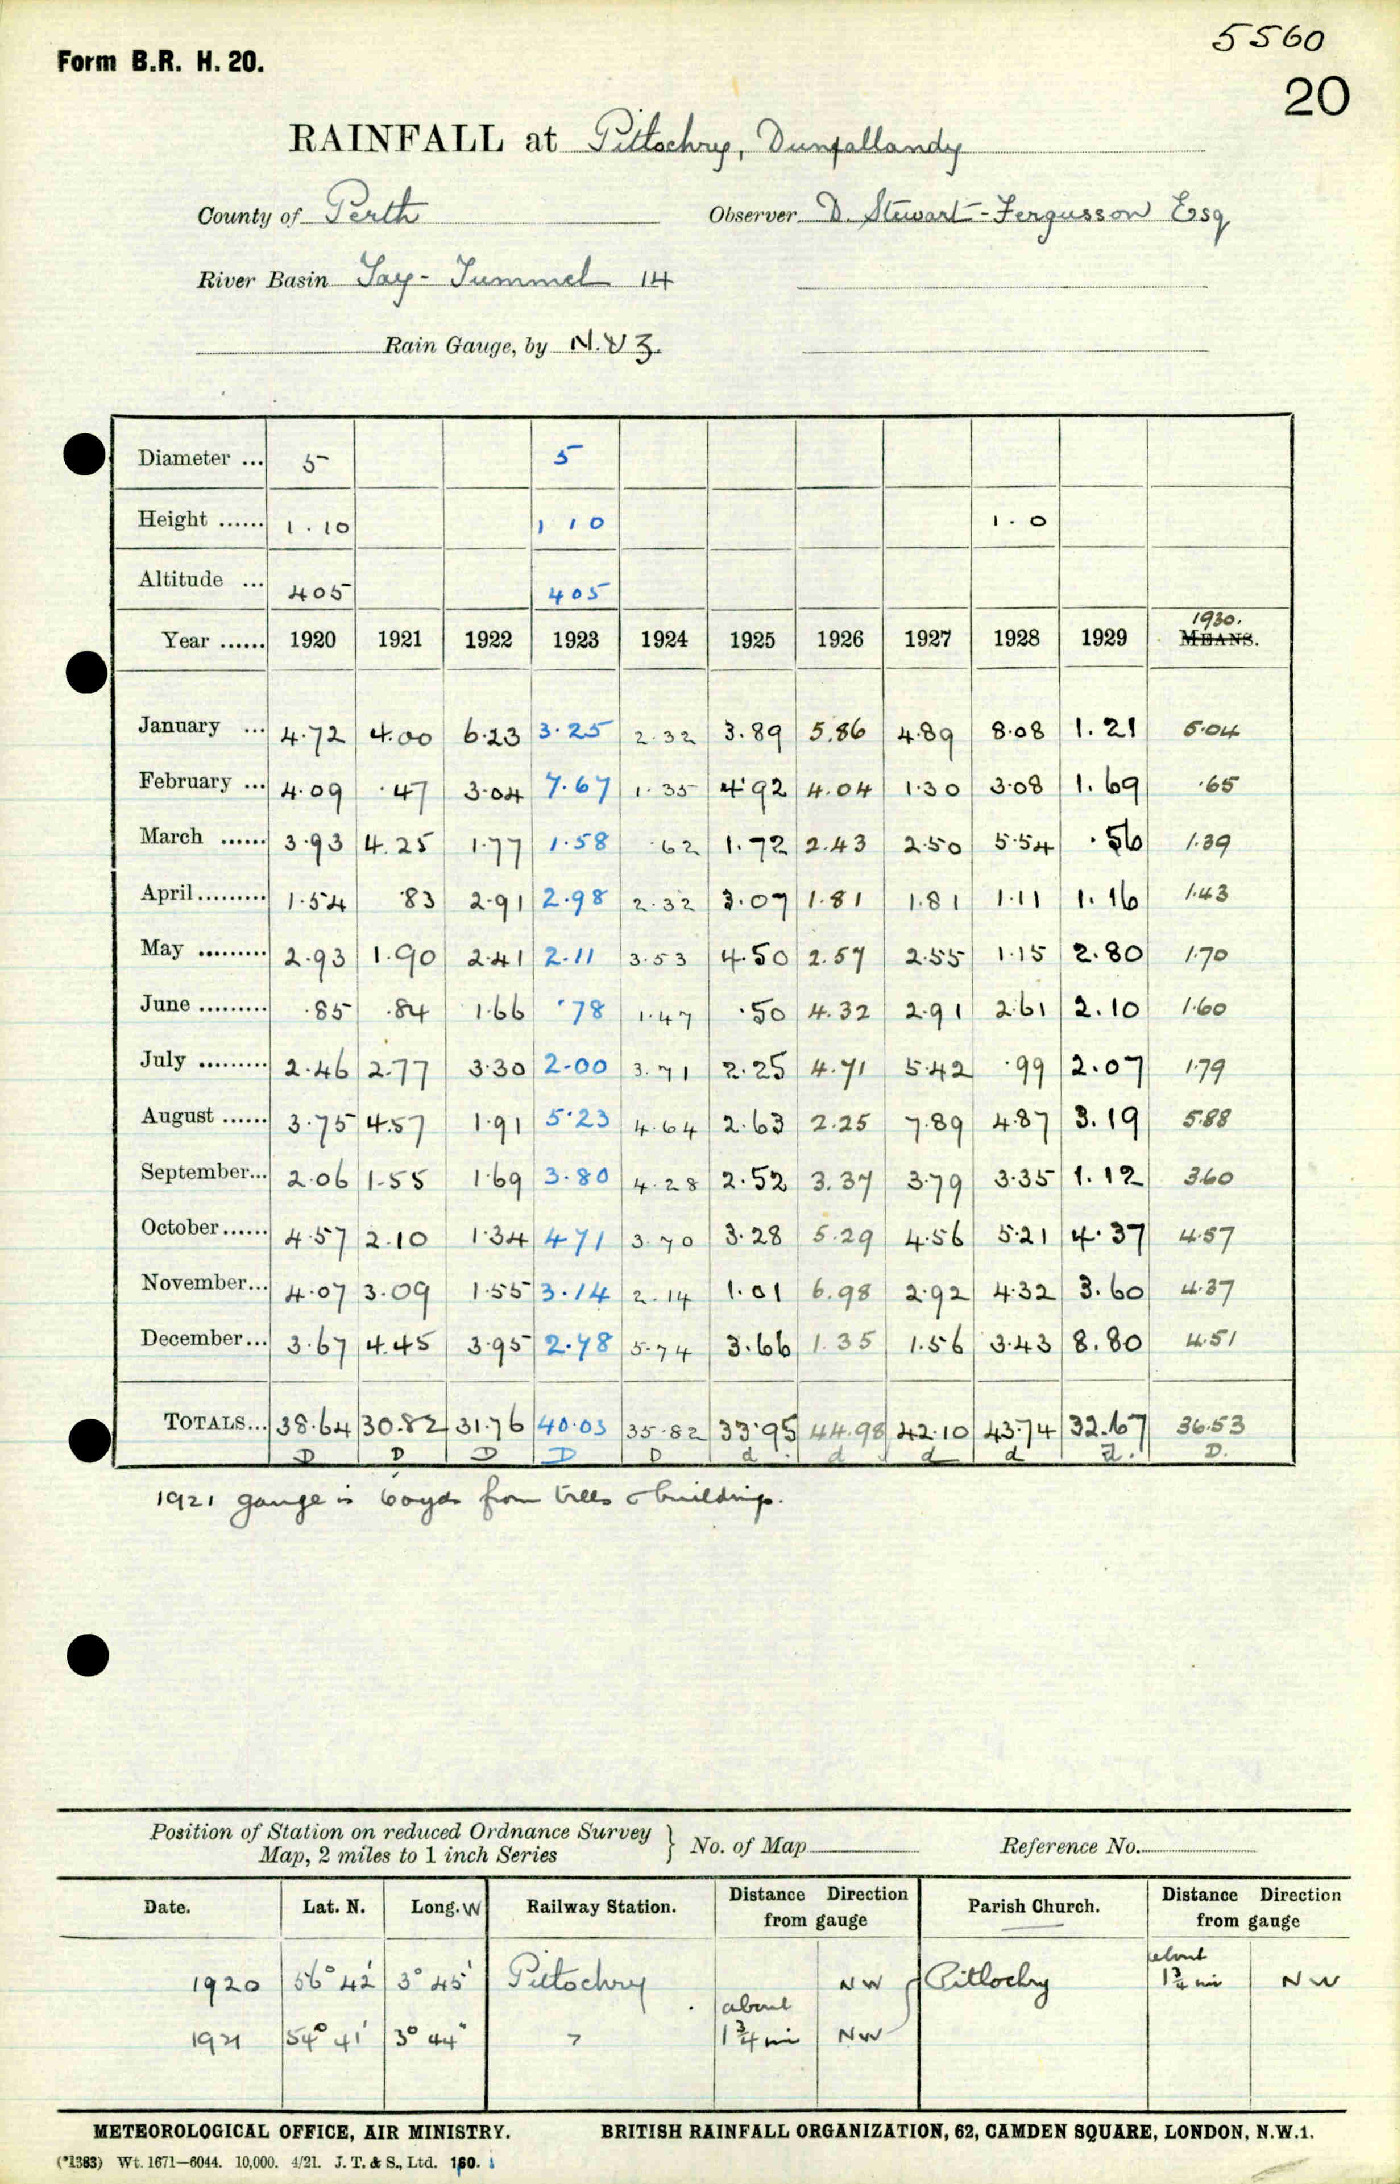 5560
Form B.R. H. 20.
20
RAINFALL at Pitlochry, Dunfallandy
County of Perth Observer D. Stewart-Fergusson Esq
River Basin Tay - Tummel 14
Rain Gauge, by N. & Z.
Diameter ... 5 5
Height ...... 1.10 1 10 1.0
Altitude ... 405 405
1930.
Year ...... 1920 1921 1922 1923 1924 1925 1926 1927 1928 1929 MEANS.
January ... 4.72 4.00 6.23 3.25 2.32 3.89 5.86 4.89 8.08 1.21 5.04
February ... 4.09 .47 3.04 7.67 1.35 4.92 4.04 1.30 3.08 1.69 .65
March ...... 3.93 4.25 1.77 1.58 .62 1.72 2.43 2.50 5.54 .56 1.39
April ......... 1.54 .83 2.91 2.98 2.32 3.07 1.81 1.81 1.11 1.16 1.43
May ......... 2.93 1.90 2.41 2.11 3.53 4.50 2.57 2.55 1.15 2.80 1.70
June ......... .85 .84 1.66 .78 1.47 .50 4.32 2.91 2.61 2.10 1.60
July ......... 2.46 2.77 3.30 2.00 3.71 2.25 4.71 5.42 .99 2.07 1.79
August ...... 3.75 4.57 1.91 5.23 4.64 2.63 2.25 7.89 4.87 3.19 5.88
September... 2.06 1.55 1.69 3.80 4.28 2.52 3.37 3.79 3.35 1.12 3.60
October ...... 4.57 2.10 1.34 4.71 3.70 3.28 5.29 4.56 5.21 4.37 4.57
November... 4.07 3.09 1.55 3.14 2.14 1.01 6.98 2.92 4.32 3.60 4.37
December... 3.67 4.45 3.95 2.78 5.74 3.66 1.35 1.56 3.43 8.80 4.51
TOTALS... 38.64 30.82 31.76 40.03 35.82 33.95 44.98 42.10 43.74 32.67 36.53
D D D D D d d d d d. D.
1921 gauge is 60yds from trees & buildings.
Position of Station on reduced Ordnance Survey Map, 2 miles to 1 inch Series } No. of Map Reference No.
Date. Lat. N. Long. W Railway Station. Distance Direction from gauge Parish Church. Distance Direction from gauge
1920 56° 42' 3° 45' Pitlochry NW Pitlochry about 1¾ mi NW
1921 54° 41' 3° 44' " about 1¾ mi NW
METEOROLOGICAL OFFICE, AIR MINISTRY. BRITISH RAINFALL ORGANIZATION, 62, CAMDEN SQUARE, LONDON, N.W.1.
(*1383) Wt. 1671—6044. 10,000. 4/21. J. T. & S., Ltd. 160.